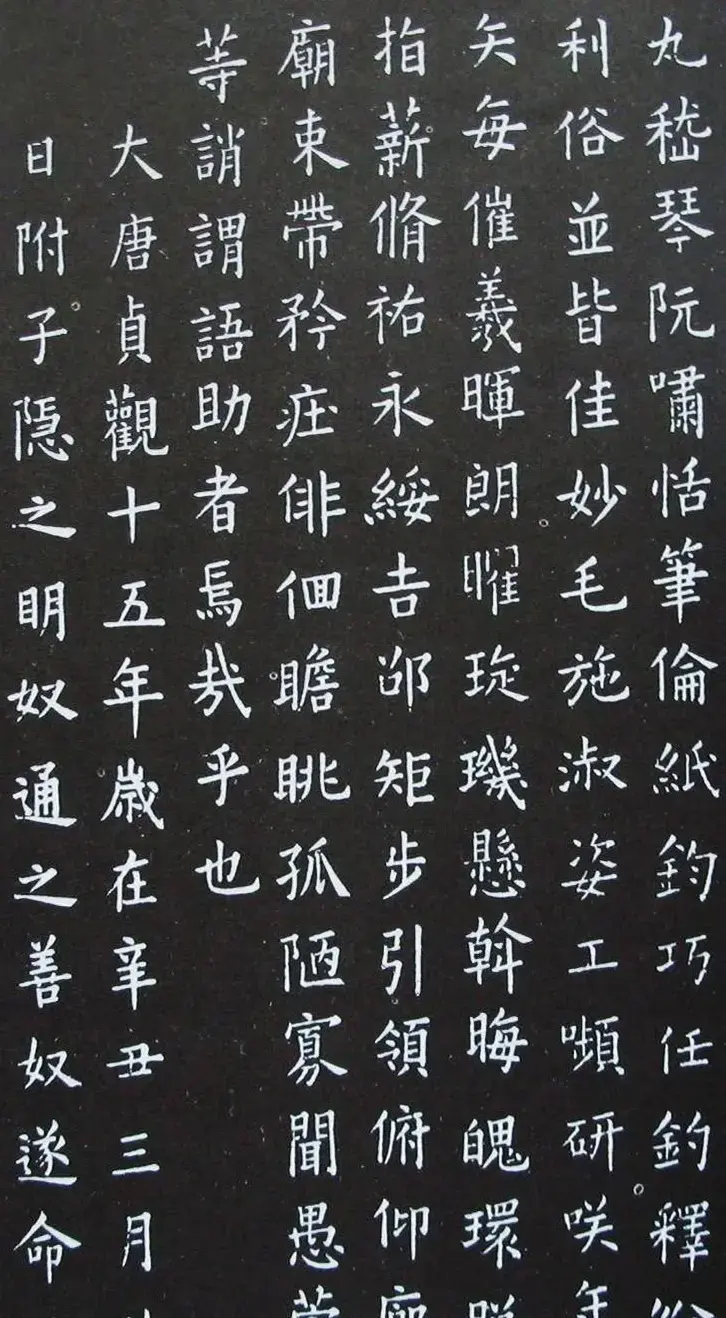 丸嵇琴阮嘯恬筆倫紙鈞巧任釣釋
利俗並皆佳妙毛施淑姿工嚬研咲年
矢每催羲暉朗曜琁璣懸斡晦魄環
指薪脩祐永綏吉邵矩步引領俯仰
廟束帶矜庄俳佪瞻眺孤陋寡聞愚
等誚謂語助者焉哉乎也
大唐貞觀十五年歲在辛丑三月
日附子隱之明奴通之善奴遂命